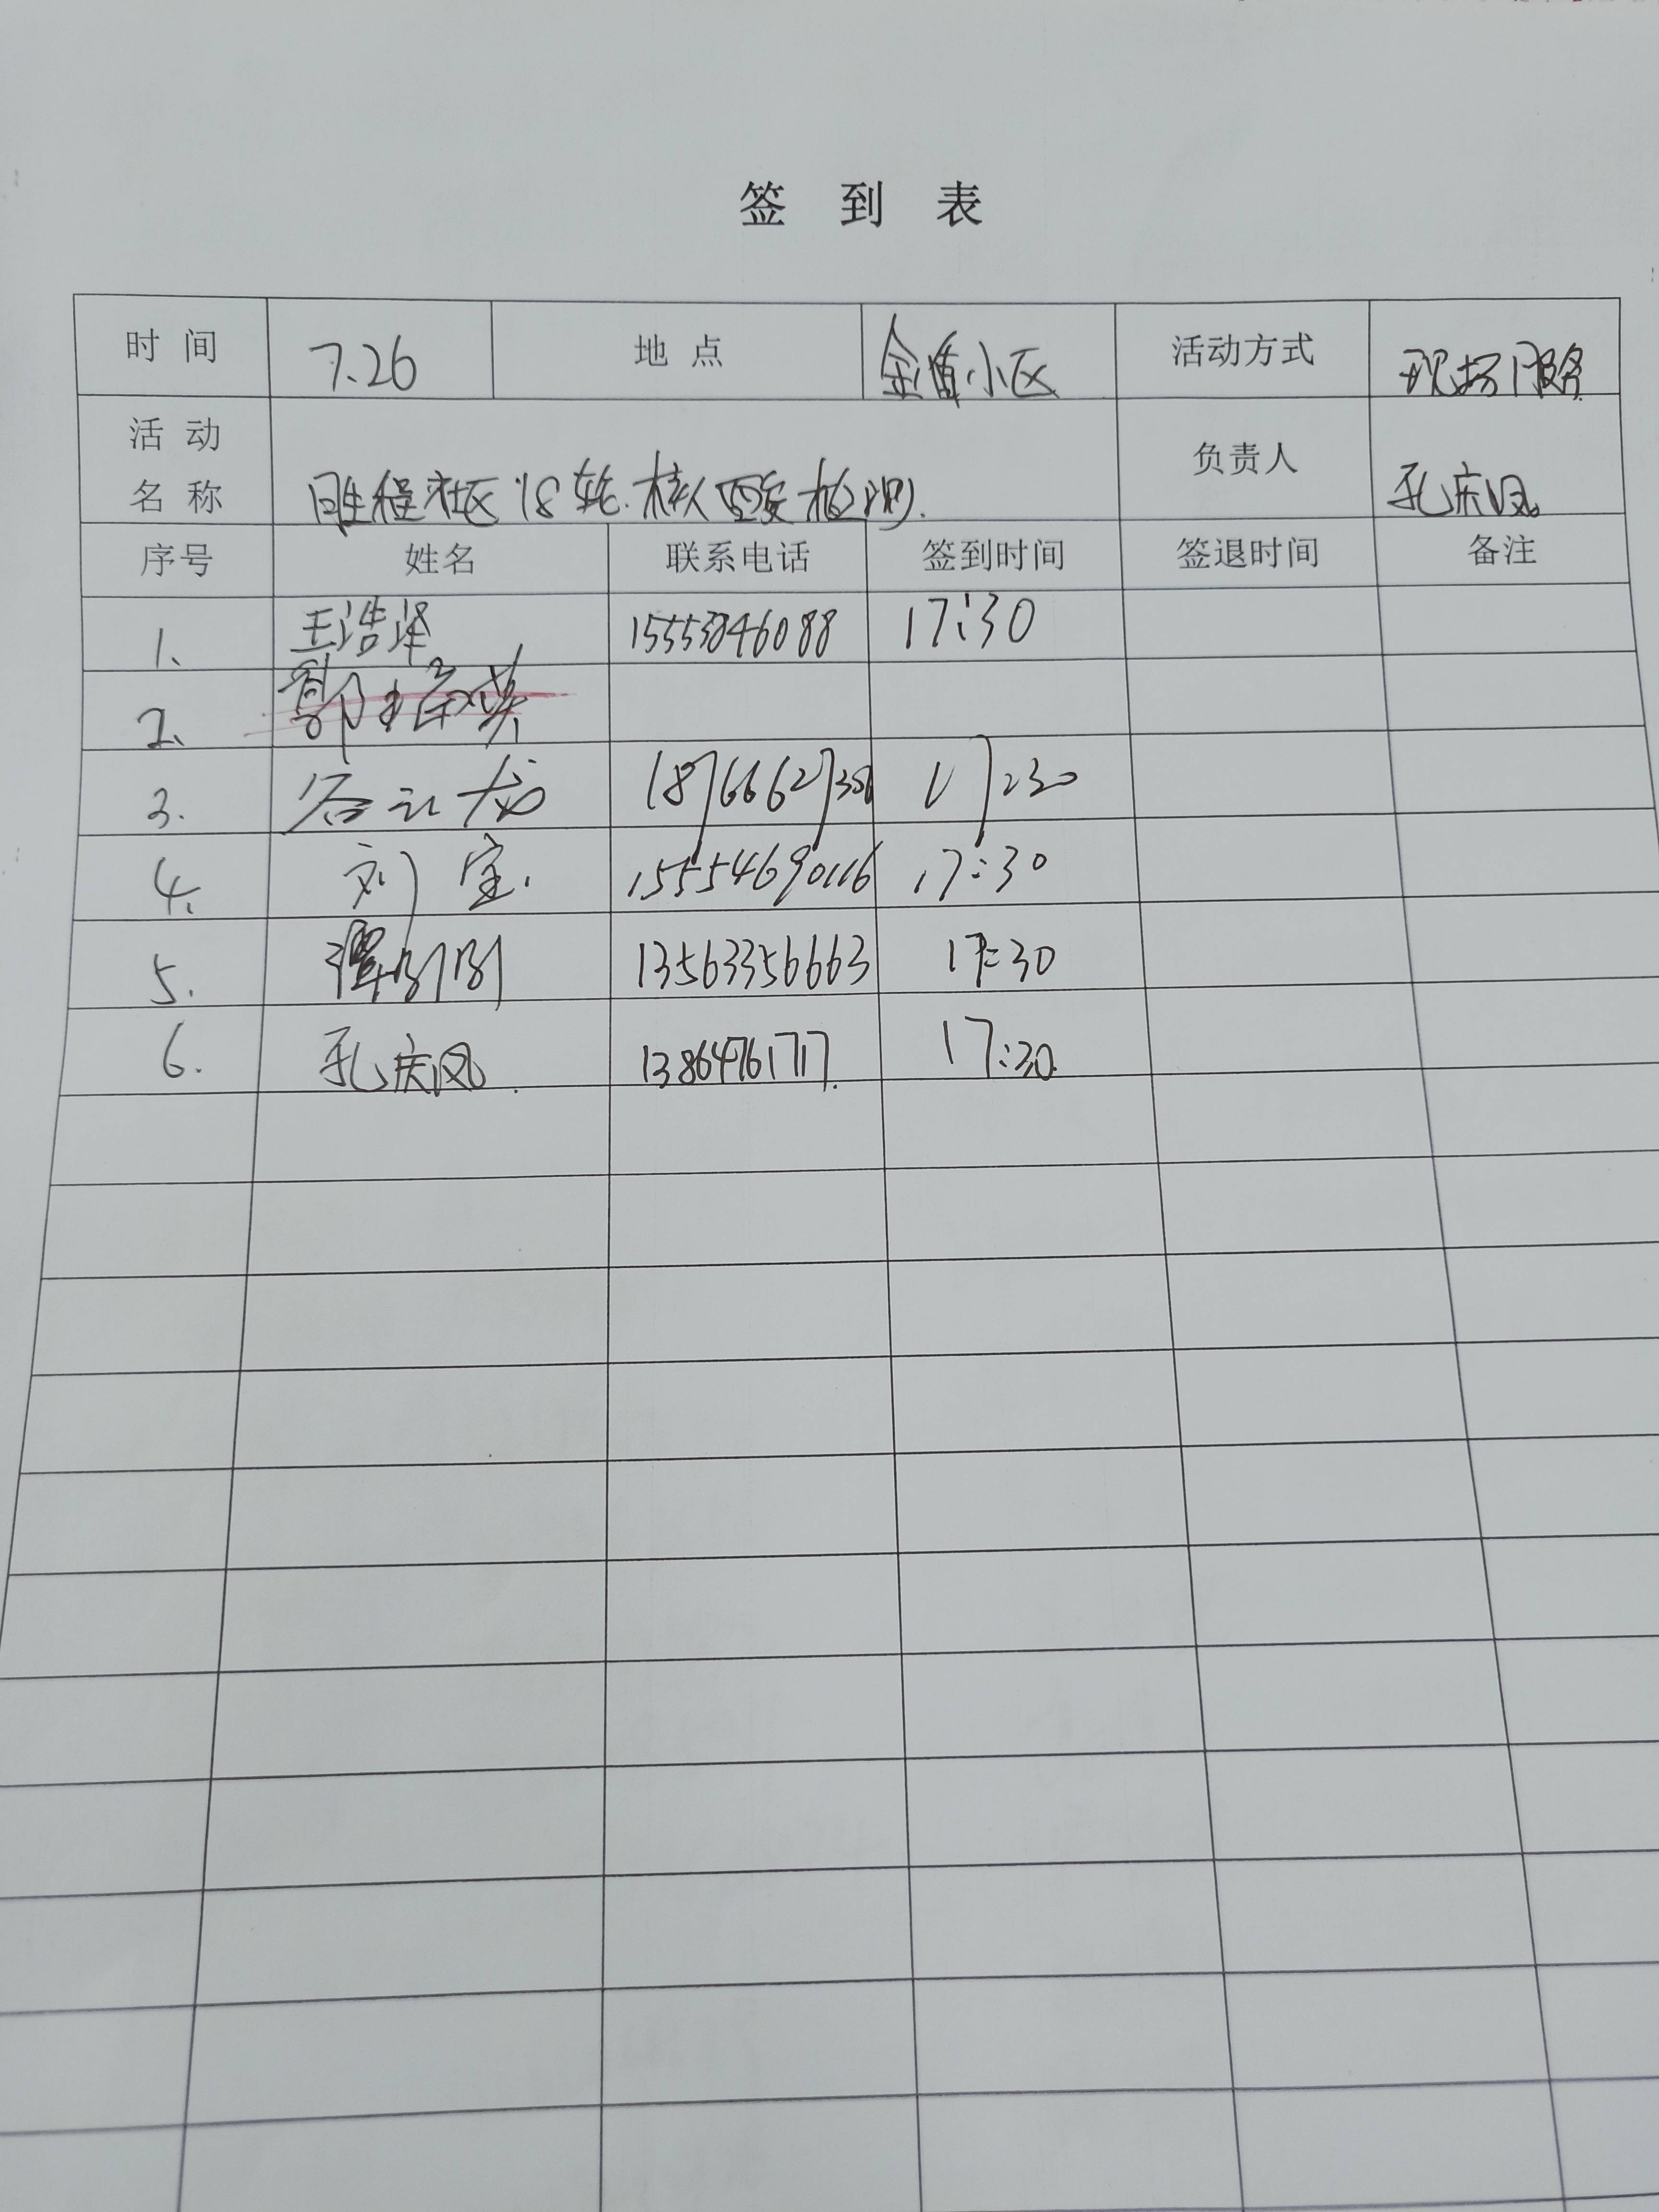 签 到 表
时 间 7.26 地 点 金盾小区 活动方式 现场服务
活 动 名 称 胜程社区18轮核酸检测. 负责人 孔庆凤
序号 姓名 联系电话 签到时间 签退时间 备注
1、 王浩泽 15553846088 17:30
2、
3. 17:30
4. 刘宝. 15554690116 17:30
5. 13563356663 17:30
6. 孔庆凤. 13864761717. 17:30.